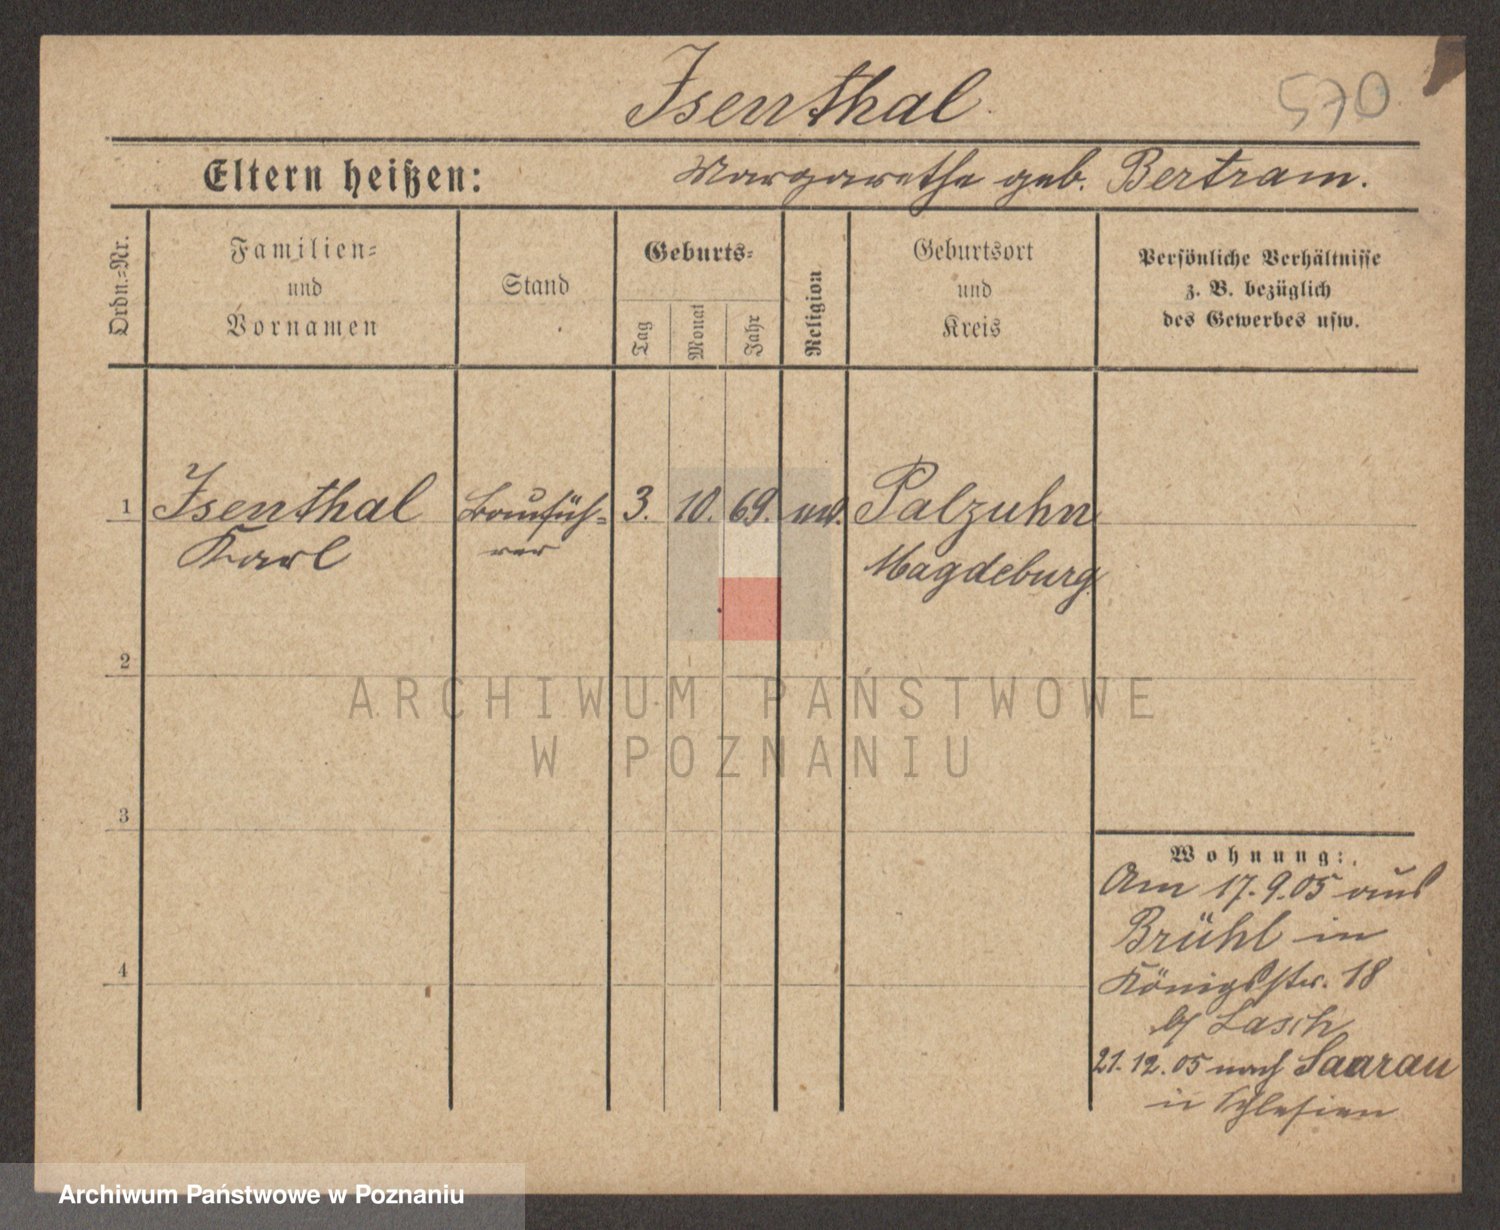 Isenthal
570
Eltern heißen: Margarethe geb. Bertram.
Ordn.-Nr.
Familien-
und
Vornamen
Stand
Geburts-
Tag
Monat
Jahr
Religion
Geburtsort
und
Kreis
Persönliche Verhältnisse
z. B. bezüglich
des Gewerbes usw.
1 Isenthal Baufüh- 3. 10. 69. ev. Palzuhn
Karl rer Magdeburg
2
ARCHIWUM PAŃSTWOWE
W POZNANIU
3
Wohnung:
Am 17.9.05 aus
Brühl in
4
Königsstr. 18
b/ Lasch
21.12.05 nach Saarau
in Schlesien
Archiwum Państwowe w Poznaniu